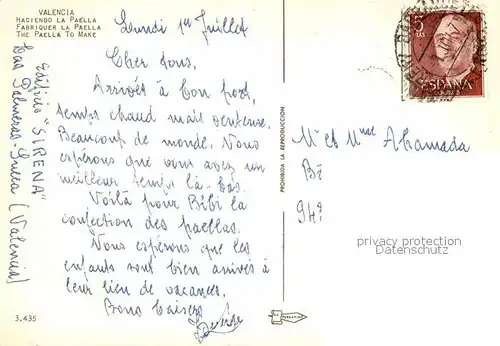 VALENCIA
HACIENDO LA PAELLA
FABRIQUER LA PAELLA
THE PAELLA TO MAKE
Lundi 1er Juillet
Cher tous,
Arrivés à bon port,
temps chaud mais venteux,
Beaucoup de monde. Nous
espérons que vous avez un
meilleur temps là-bas.
Voilà pour Bibi la
confection des paellas.
Nous espérons que les
enfants sont bien arrivés à
leur lieu de vacances.
Bons baisers
Edificio "SIRENA"
Las Palmeras-Sueca (Valencia)
3.435
PROHIBIDA LA REPRODUCCION
5
PTAS
ESPAÑA
CORREOS
Mr et Mme
Bd
94
privacy protection
Datenschutz